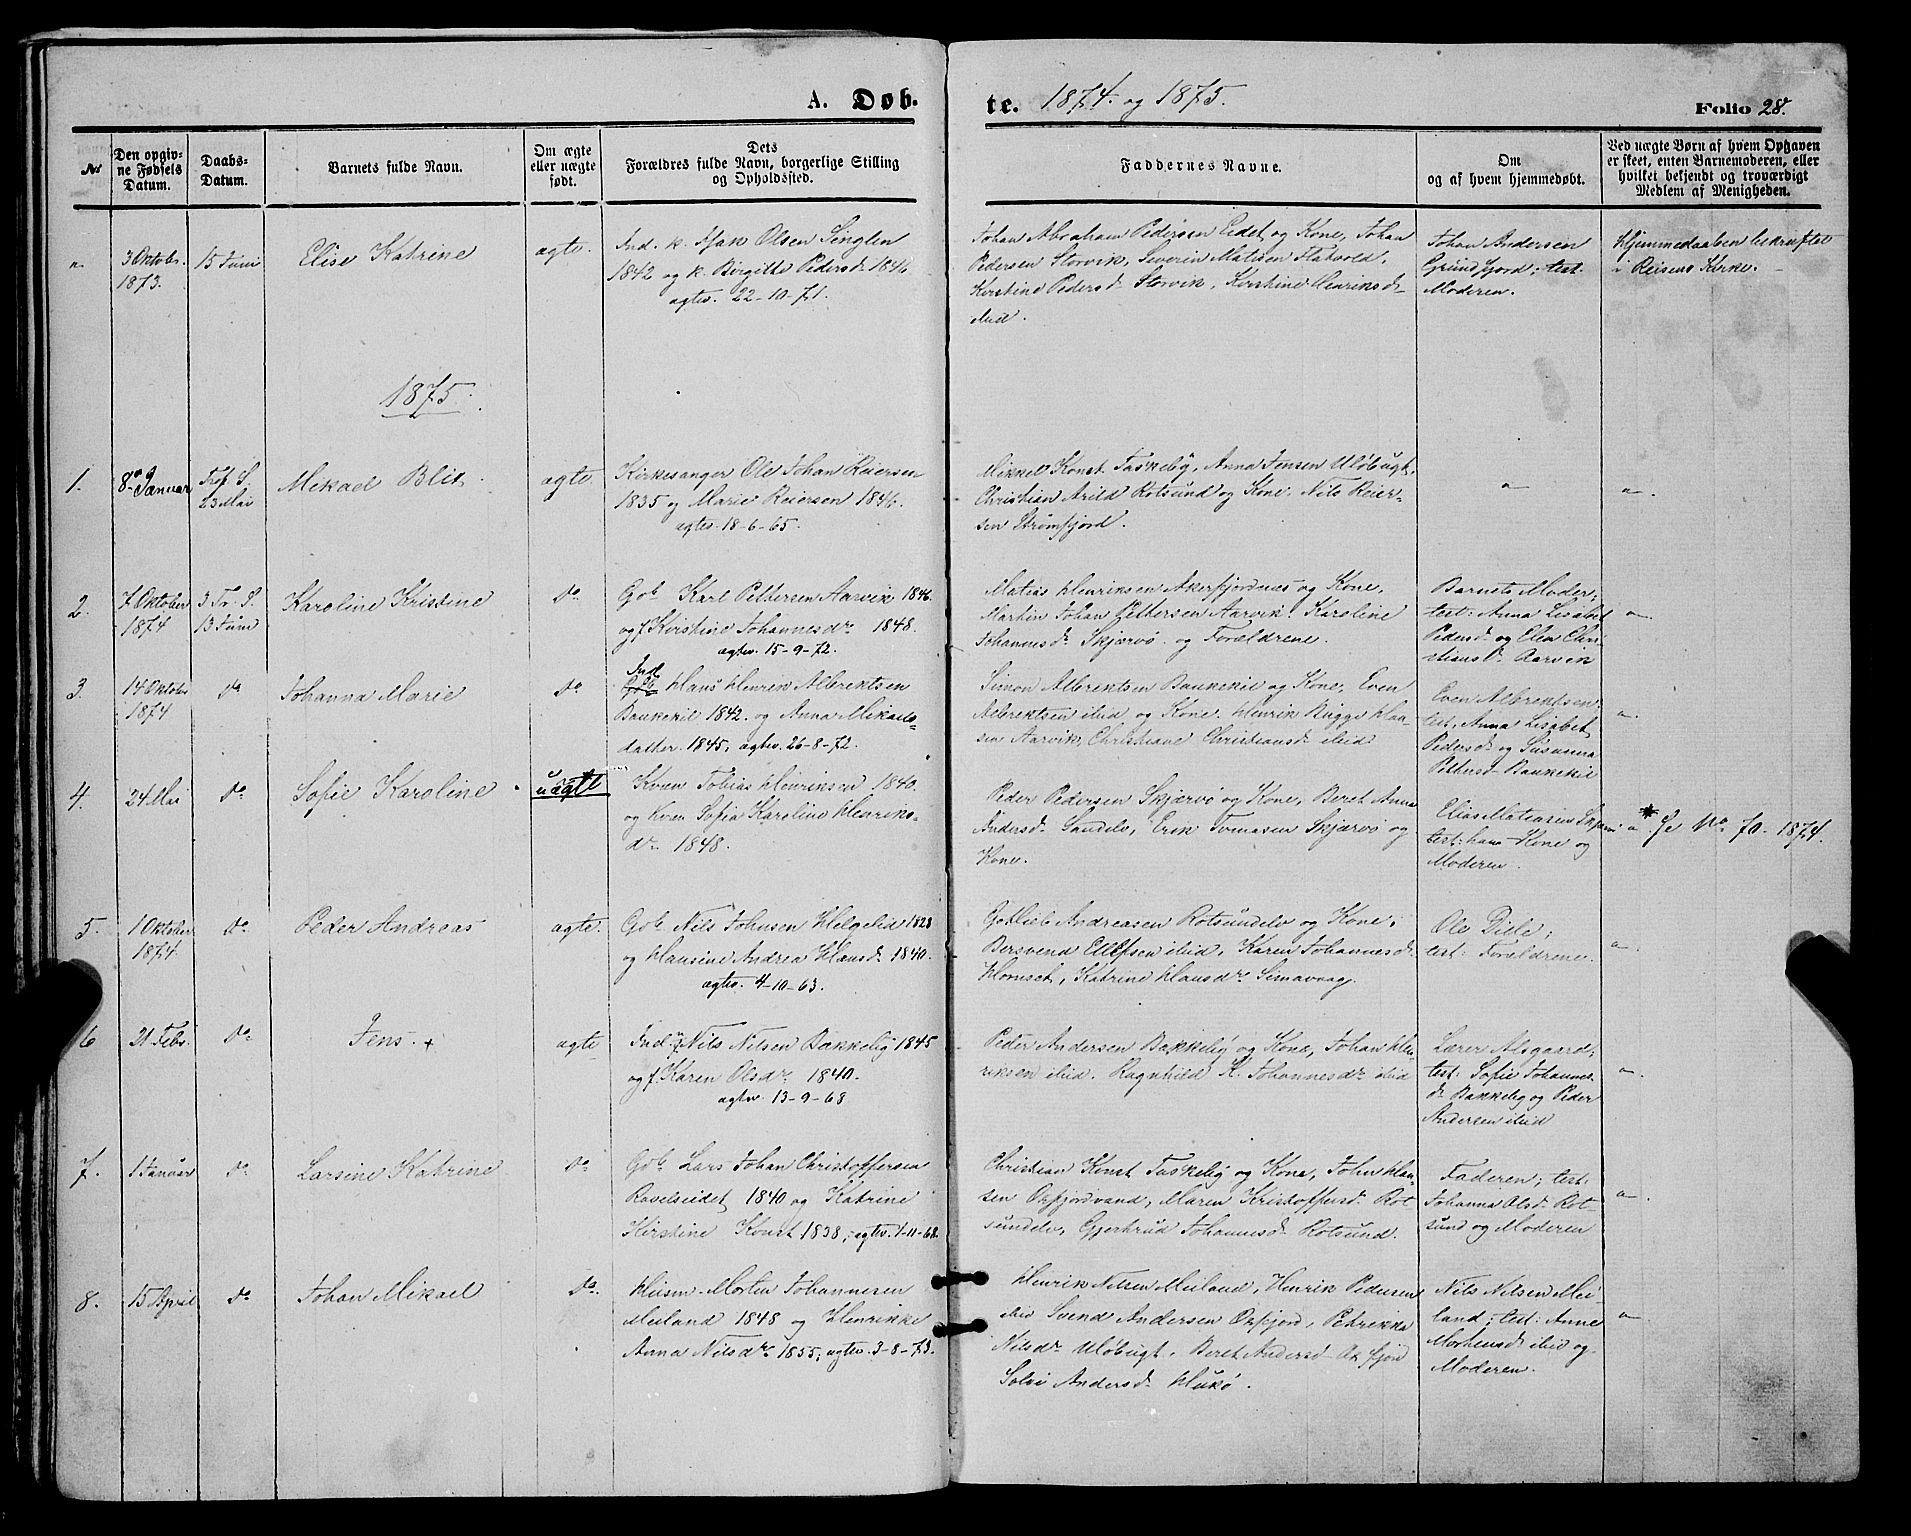 A. Døb- te. 1874. og 1875.
Folio 28.
No
Den opgiv-
ne Fødsels
Datum.
Daabs-
Datum.
Barnets fulde Navn.
Om ægte
eller uægte
født.
Dets
Forældres fulde Navn, borgerlige Stilling
og Opholdssted.
Faddernes Navne.
Om
og af hvem hjemmedøbt.
Ved uægte Børn af hvem Opgaven
er skeet, enten Barnemoderen, eller
hvilket bekjendt og troværdigt
Medlem af Menigheden.
3 Oktob.
1873.
15 Juni
Elise Katrine
ægte.
Ind. k. Isak Olsen Singlen
1842 og k. Birgitte Pedersd. 1846
ægtev. 22-10-71.
Johan Abraham Pedersen Eidet og Kone, Johan
Pedersen Storvik, Severin Matisen Flatvold,
Kirstine Pedersd. Storvik, Kirstine Henriksd.
ibid.
Johan Andersen
Grundfjord; test.
Moderen.
Hjemmedaaben bekræftet
i Reisens Kirke.
1875.
1.
8. Januar
Tref. S.
23 Mai
Mikael Blix
ægte.
Kirkesanger Ole Johan Reiersen
1835 og Marie Reiersen 1846.
ægtev. 18-6-65.
Mikkel Konst Taskeby, Anna Jensen Uløbugt,
Christian Arild Rotsund og Kone, Nils Reier-
sen Strømfjord.
"
" .
2.
7 Oktober
1874
3 Tr. S.
13 Juni
Karoline Kristine
do
Gbr. Karl Pettersen Aarvik 1846.
og f. Kirstine Johannesdr. 1848.
ægtev. 15-9-72.
Matias Henriksen Akerfjordnæs og Kone,
Martin Johan Pettersen Aarvik. Karoline
Johannesd. Skjærvø og Forældrene.
Barnets Moder;
test: Anna Lisabet
Pedersd. og Elen Chri-
stiansd. Aarvik
" .
3.
14 Oktober
1874
do
Johanna Marie
do
Ind.
Hans Henrik Albrektsen
Baukekil 1842. og Anna Mikaels-
datter. 1845, ægtev. 26-8-72.
Simon Albrektsen Baukekil og Kone, Even
Albrektsen ibid og Kone. Henrik Bugge Han-
sen Aarvik, Christiane Christiansd. ibid.
Even Albrektsen;
test. Anna Lisabet
Pedersd. og Susanna
Pettersd. Baukekil
" .
4.
24 Mai
do
Sofie Karoline
uægte
Kven Tobias Henriksen 1840.
og Kven Sofia Karoline Henriks-
dr. 1848.
Peder Pedersen Skjærvø og Kone, Beret Anna
Andersd. Sandelv, Erik Tomasen Skjærvø og
Kone.
Elias Matiasen Skjærvø
test: hans Kone og
Moderen.
* Se No. 70. 1874.
5.
1 Oktober
1874.
do
Peder Andreas
ægte.
Gbr. Nils Johnsen Helgelid 1828
og Hansine Andrea Hansd. 1840.
ægtev. 4-10-63.
Gotlieb Andreasen Rotsundelv og Kone;
Bersvend Ellefsen ibid, Karen Johannesd.
Homset, Katrine Hansdr. Simavaag.
Ole Dille;
test: Forældrene.
" .
6
21 Febr.
do
Jens. +
ægte
Ind. Nils Nilsen Bakkeby 1845
og f. Karen Olsdr. 1840.
ægtev. 13-9-68
Peder Andersen Bakkeby og Kone, Johan Hen-
riksen ibid. Ragnhild K. Johannesdr. ibid
Lærer Alsgaard;
test: Sofie Johannes-
d. Bakkeby og Peder
Andersen ibid
" .
7.
1 Januar
do
Larsine Katrine
do
Gbr. Lars Johan Christoffersen
Ravelseidet 1840 og Katrine
Kirstine Konst 1838; ægtev. 1-11-68.
Christian Konst Taskeby og Kone, John Han-
sen Oxfjordvand, Maren Kristoffersd. Rot-
sundelv, Gjertrud Johannesd. Rotsund.
Faderen; test:
Johanna Olsd. Rot-
sund og Moderen
" .
8.
15 April
do
Johan Mikael
do.
Husm. Morten Johannesen
Meiland 1848 og Henrikke
Anna Nilsdr. 1855; ægtev. 3-8-73.
Henrik Nilsen Meiland, Henrik Pedersen
ibid Svend Andersen Oxfjord, Petrikka
Nilsdr. Uløbugt. Beret Andersd. Oxfjord
Solvi Andersd. Hukø.
Nils Nilsen Mei-
land; test: Anne
Mortensd. ibid og
Moderen.
"